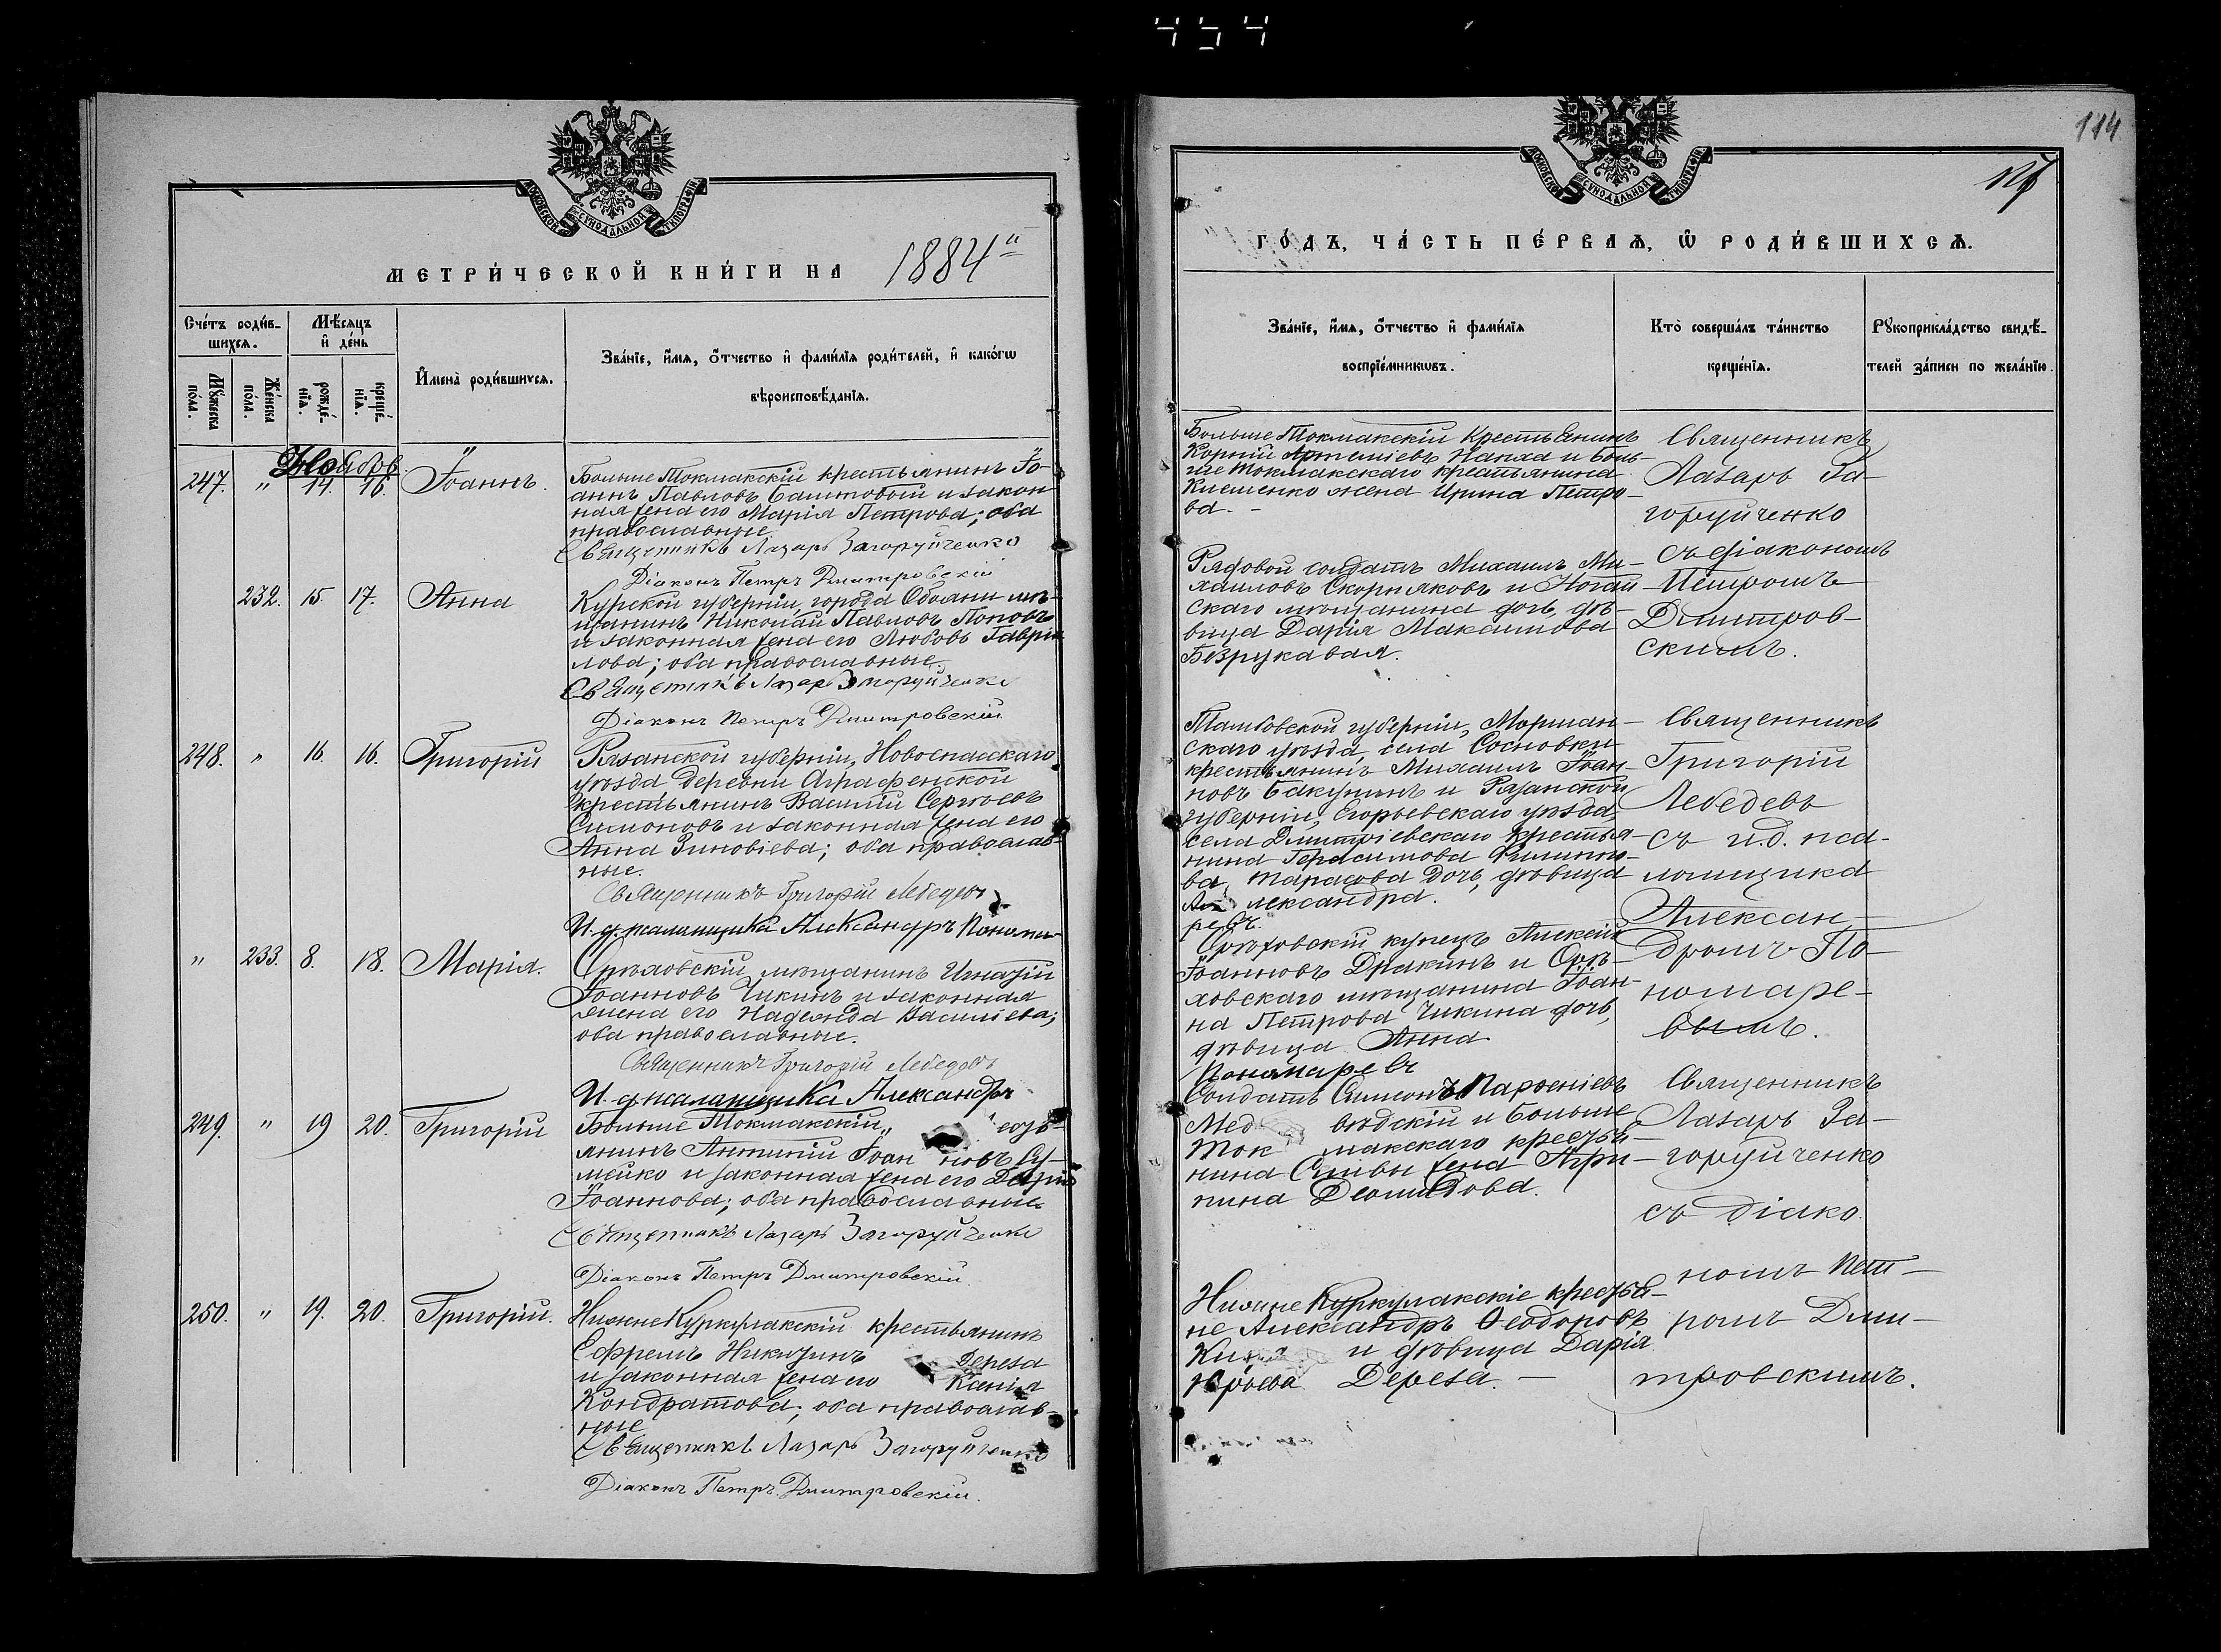 454
МОСКОВСКОЙ СѴНОДАЛЬНОЙ ТИПОГРАФІИ
МЕТРИ́ЧЕСКОЙ КНИ́ГИ НА 1884й
Сче́тъ роди́в-
шихсѧ.
Мѣ́сѧцъ
и҆ де́нь
Мꙋ́жеска
по́ла.
Же́нска
по́ла.
рожде́-
нїѧ.
креще́-
нїѧ.
И҆мена̀ роди́вшихсѧ.
Зва́нїе, и҆́мѧ, ѻ҆́тчество и҆ фами́лїѧ роди́телей, и҆ како́гѡ
вѣроисповѣ́данїѧ.
Ноябрь
247. " 14. 16. Іоаннъ.
Больше Токмакскій крестьянинъ Іо-
аннъ Павловъ Баштовой и закон-
ная жена его Марія Петрова; оба
православные.
Священникъ Лазарь Загоруйченко
Діаконъ Петръ Дмитровскій
232. 15. 17. Анна
Курской губерніи, города Обояни мѣ-
щанинъ Николай Павловъ Поповъ
и законная жена его Любовь Гаврі-
лова; оба православные.
Священникъ Лазарь Загоруйченко
Діаконъ Петръ Дмитровскій
248. " 16. 16. Григорій
Рязанской губерніи, Новоспасскаго
уѣзда деревни Аграфенской
крестьянинъ Василій Сергѣевъ
Симоновъ и законная жена его
Анна Зиновіева; оба православ-
ные.
Священникъ Григорій Лебедевъ
И. д. псаломщика Александръ Понома-
" 233. 8. 18. Марія.
Орѣховскій мѣщанинъ Игнатій
Іоанновъ Чикинъ и законная
жена его Надежда Васильева;
оба православные.
Священникъ Григорій Лебедевъ
И. д. псаломщика Александръ
249. " 19 20. Григорій
Больше Токмакскій
янинъ Антоній Іоан новъ Су-
мейко и законная жена его Дарія
Іоаннова; оба православные
Священникъ Лазарь Загоруйченко
Діаконъ Петръ Дмитровскій.
250. " 19. 20. Григорій.
Нижне Куркулакскій крестьянинъ
Ефремъ Никитинъ Дереза
и законная жена его Ксенія
Кондратова; оба православ-
ные
Священникъ Лазарь Загоруйченко
Діаконъ Петръ Дмитровскій.
114
МОСКОВСКОЙ СѴНОДАЛЬНОЙ ТИПОГРАФІИ
ГО́ДЪ, ЧА́СТЬ ПЕ́РВАѦ, Ѡ҆ РОДИ́ВШИХСѦ.
Зва́нїе, и҆́мѧ, ѻ҆́тчество и҆ фами́лїѧ
воспрїе́мникѡвъ.
Кто̀ соверша́лъ та́инство
креще́нїѧ.
Рꙋкоприкла́дство свидѣ́-
телей за́писи по жела́нїю.
Больше Токмакскій Крестьянинъ
Корній Артеміевъ Папка и Боль-
ше Токмакскаго крестьянина
Клеменко жена Ирина Петро-
ва. -
Священникъ
Лазарь За-
горуйченко
съ діакономъ
Петромъ
Дмитров-
скимъ.
Рядовой солдатъ Михаилъ Ми-
хаиловъ Скорняковъ и Ногай-
скаго мѣщанина дочь, дѣ-
вица Дарія Максимова
Безрукавая.
Тамбовской губерніи, Моршан-
скаго уѣзда, села Сосновки
крестьянинъ Михаилъ Іоан-
новъ Бакунинъ и Рязанской
губерніи, Егорьевскаго уѣзда,
села Димитріевскаго крестья-
нина Герасимова Филиппо-
ва Тарасова дочь, дѣвица
Александра.
ревъ.
Священникъ
Григорій
Лебедевъ
съ и.д. пса-
ломщика
Алексан-
дромъ По-
номаре-
вымъ.
Орѣховскій купецъ Алексій
Іоанновъ Дракинъ и Орѣ-
ховскаго мѣщанина Іоан-
на Петрова Чикина дочь,
дѣвица Анна
Пономаревъ
Солдатъ Симеонъ Парѳеніевъ
Мед вѣдскій и Больше
Ток макскаго крестья-
нина Сливы жена Агри-
пина Деомидова.
Священникъ
Лазарь За-
горуйченко
съ діако
номъ Пет-
ромъ Дми-
тровскимъ.
Нижне Куркулакскіе крестья-
не Александръ Ѳеодоровъ
и дѣвица Дарія
Дереза. -